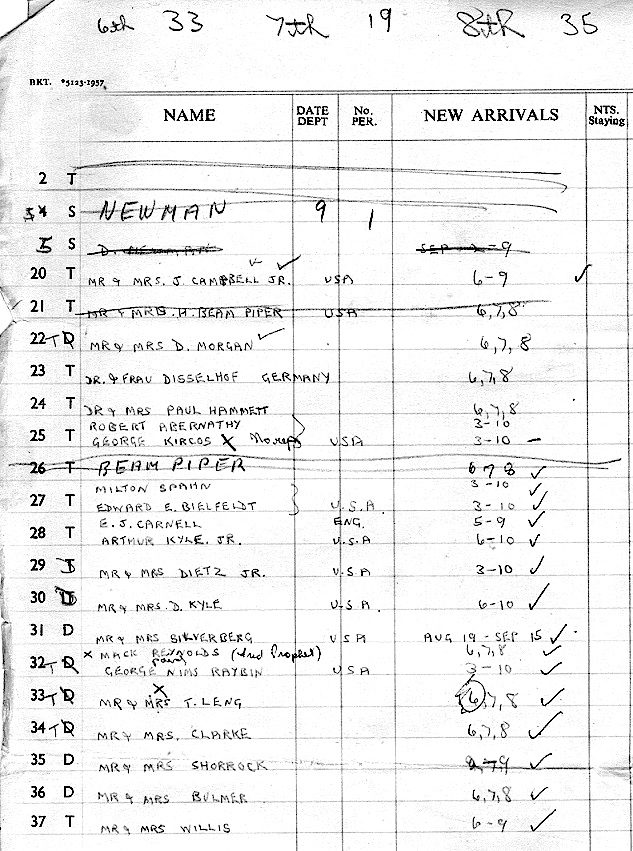 6th 33 7th 19 8th 35
BKT. *5123-1957
NAME DATE DEPT No. PER. NEW ARRIVALS NTS. Staying
2 T
4 S NEWMAN 9 1
5 S SEP 9
20 T MR & MRS. J. CAMPBELL JR. USA 6-9
21 T MR & MRS. H. BEAM PIPER USA 6,7,8
22 T D MR & MRS D. MORGAN 6,7,8
23 T DR. & FRAU DISSELHOF GERMANY 6,7,8
24 T DR & MRS PAUL HAMMETT 6,7,8
ROBERT ABERNATHY 3-10
25 T GEORGE KIRCOS X USA 3-10 -
26 T BEAM PIPER 6 7 8
MILTON SPAHN 3-10
27 T EDWARD E. BIELFELDT U.S.A. 3-10
E. J. CARNELL ENG. 5-9
28 T ARTHUR KYLE. JR. U.S.A 6-10
29 MR & MRS DIETZ JR. U.S.A 3-10
30 MR & MRS. D. KYLE U.S.A. 6-10
31 D MR & MRS SILVERBERG USA AUG 19 - SEP 15
X MACK REYNOLDS (and Prophet) 6,7,8
32 T D GEORGE NIMS RAYBIN USA 3-10
33 T D MR & MRS T. LENG 6,7,8
34 T D MR & MRS. CLARKE 6,7,8
35 D MR & MRS SHORROCK
36 D MR & MRS BULMER 6,7,8
37 T MR & MRS WILLIS 6-9